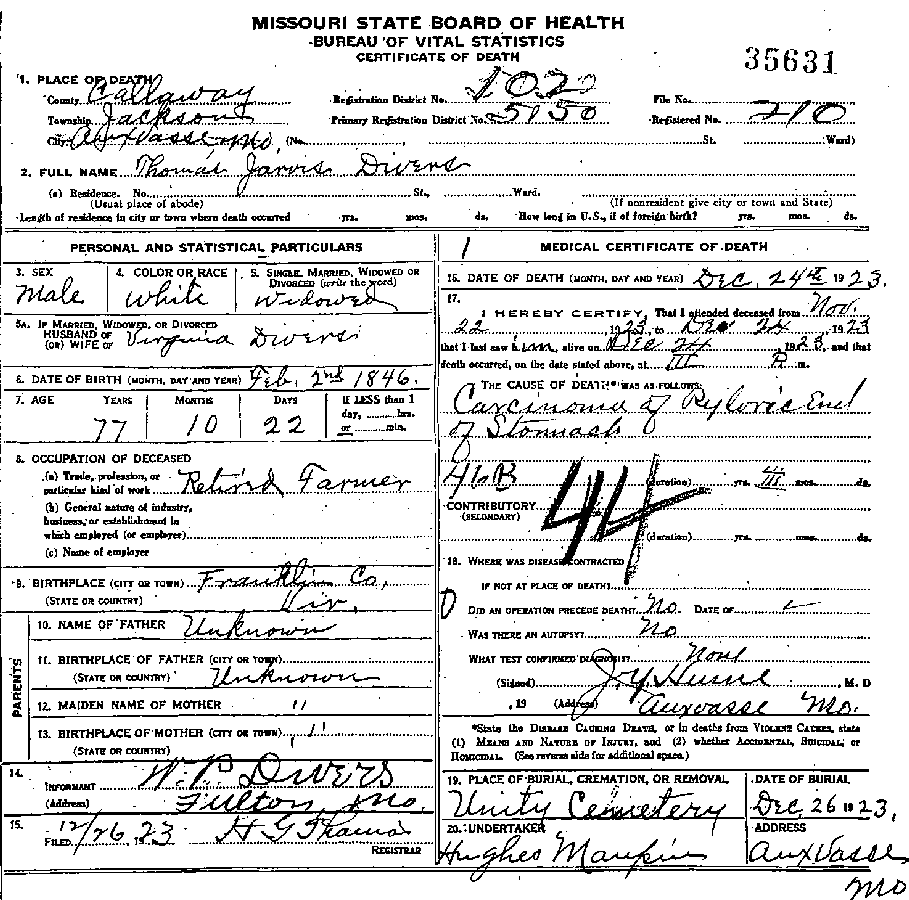 MISSOURI STATE BOARD OF HEALTH
BUREAU OF VITAL STATISTICS
CERTIFICATE OF DEATH
35631
1. PLACE OF DEATH
County Callaway Registration District No. 1020 File No.
Township Jackson Primary Registration District No. 5150 Registered No. 210
City Auxvasse Mo. (No. St. Ward)
2. FULL NAME Thomas Jarvis Divers
(a) Residence. No. St., Ward.
(Usual place of abode) (If nonresident give city or town and State)
Length of residence in city or town where death occurred yrs. mos. ds. How long in U.S., if of foreign birth? yrs. mos. ds.
PERSONAL AND STATISTICAL PARTICULARS
3. SEX Male
4. COLOR OR RACE White
5. SINGLE, MARRIED, WIDOWED OR DIVORCED (write the word) Widowed
5A. IF MARRIED, WIDOWED, OR DIVORCED
HUSBAND OF
(OR) WIFE OF Virginia Divers
6. DATE OF BIRTH (MONTH, DAY AND YEAR) Feb. 2nd 1846.
7. AGE YEARS MONTHS DAYS IF LESS than 1
day, hrs.
77 10 22 or min.
8. OCCUPATION OF DECEASED
(a) Trade, profession, or
particular kind of work Retired Farmer
(b) General nature of industry,
business, or establishment in
which employed (or employer)
(c) Name of employer
9. BIRTHPLACE (CITY OR TOWN) Franklin Co,
(STATE OR COUNTRY) Vir.
PARENTS
10. NAME OF FATHER Unknown
11. BIRTHPLACE OF FATHER (CITY OR TOWN)
(STATE OR COUNTRY) Unknown
12. MAIDEN NAME OF MOTHER "
13. BIRTHPLACE OF MOTHER (CITY OR TOWN) "
(STATE OR COUNTRY)
14.
INFORMANT W. P. Divers
(Address) Fulton, Mo.
15.
FILED 12/26, 1923
REGISTRAR
1 MEDICAL CERTIFICATE OF DEATH
16. DATE OF DEATH (MONTH, DAY AND YEAR) Dec. 24th 1923.
17.
I HEREBY CERTIFY, That I attended deceased from Nov.
22, 1923, to Dec 24, 1923
that I last saw him alive on Dec 24, 1923, and that
death occurred, on the date stated above, at III P m.
THE CAUSE OF DEATH* WAS AS FOLLOWS:
Carcinoma of Pyloric End
of Stomach
46B 44 (duration) yrs. III mos. ds.
CONTRIBUTORY
(SECONDARY)
(duration) yrs. mos. ds.
18. WHERE WAS DISEASE CONTRACTED
IF NOT AT PLACE OF DEATH
DID AN OPERATION PRECEDE DEATH? No. DATE OF
WAS THERE AN AUTOPSY? No
WHAT TEST CONFIRMED DIAGNOSIS? None
(Signed) , M. D
, 19 (Address) Auxvasse Mo.
*State the DISEASE CAUSING DEATH, or in deaths from VIOLENT CAUSES, state
(1) MEANS AND NATURE OF INJURY, and (2) whether ACCIDENTAL, SUICIDAL, or
HOMICIDAL. (See reverse side for additional space.)
19. PLACE OF BURIAL, CREMATION, OR REMOVAL
Unity Cemetery
DATE OF BURIAL
Dec. 26 1923.
20. UNDERTAKER
Hughes Maupin
ADDRESS
Auxvasse
Mo